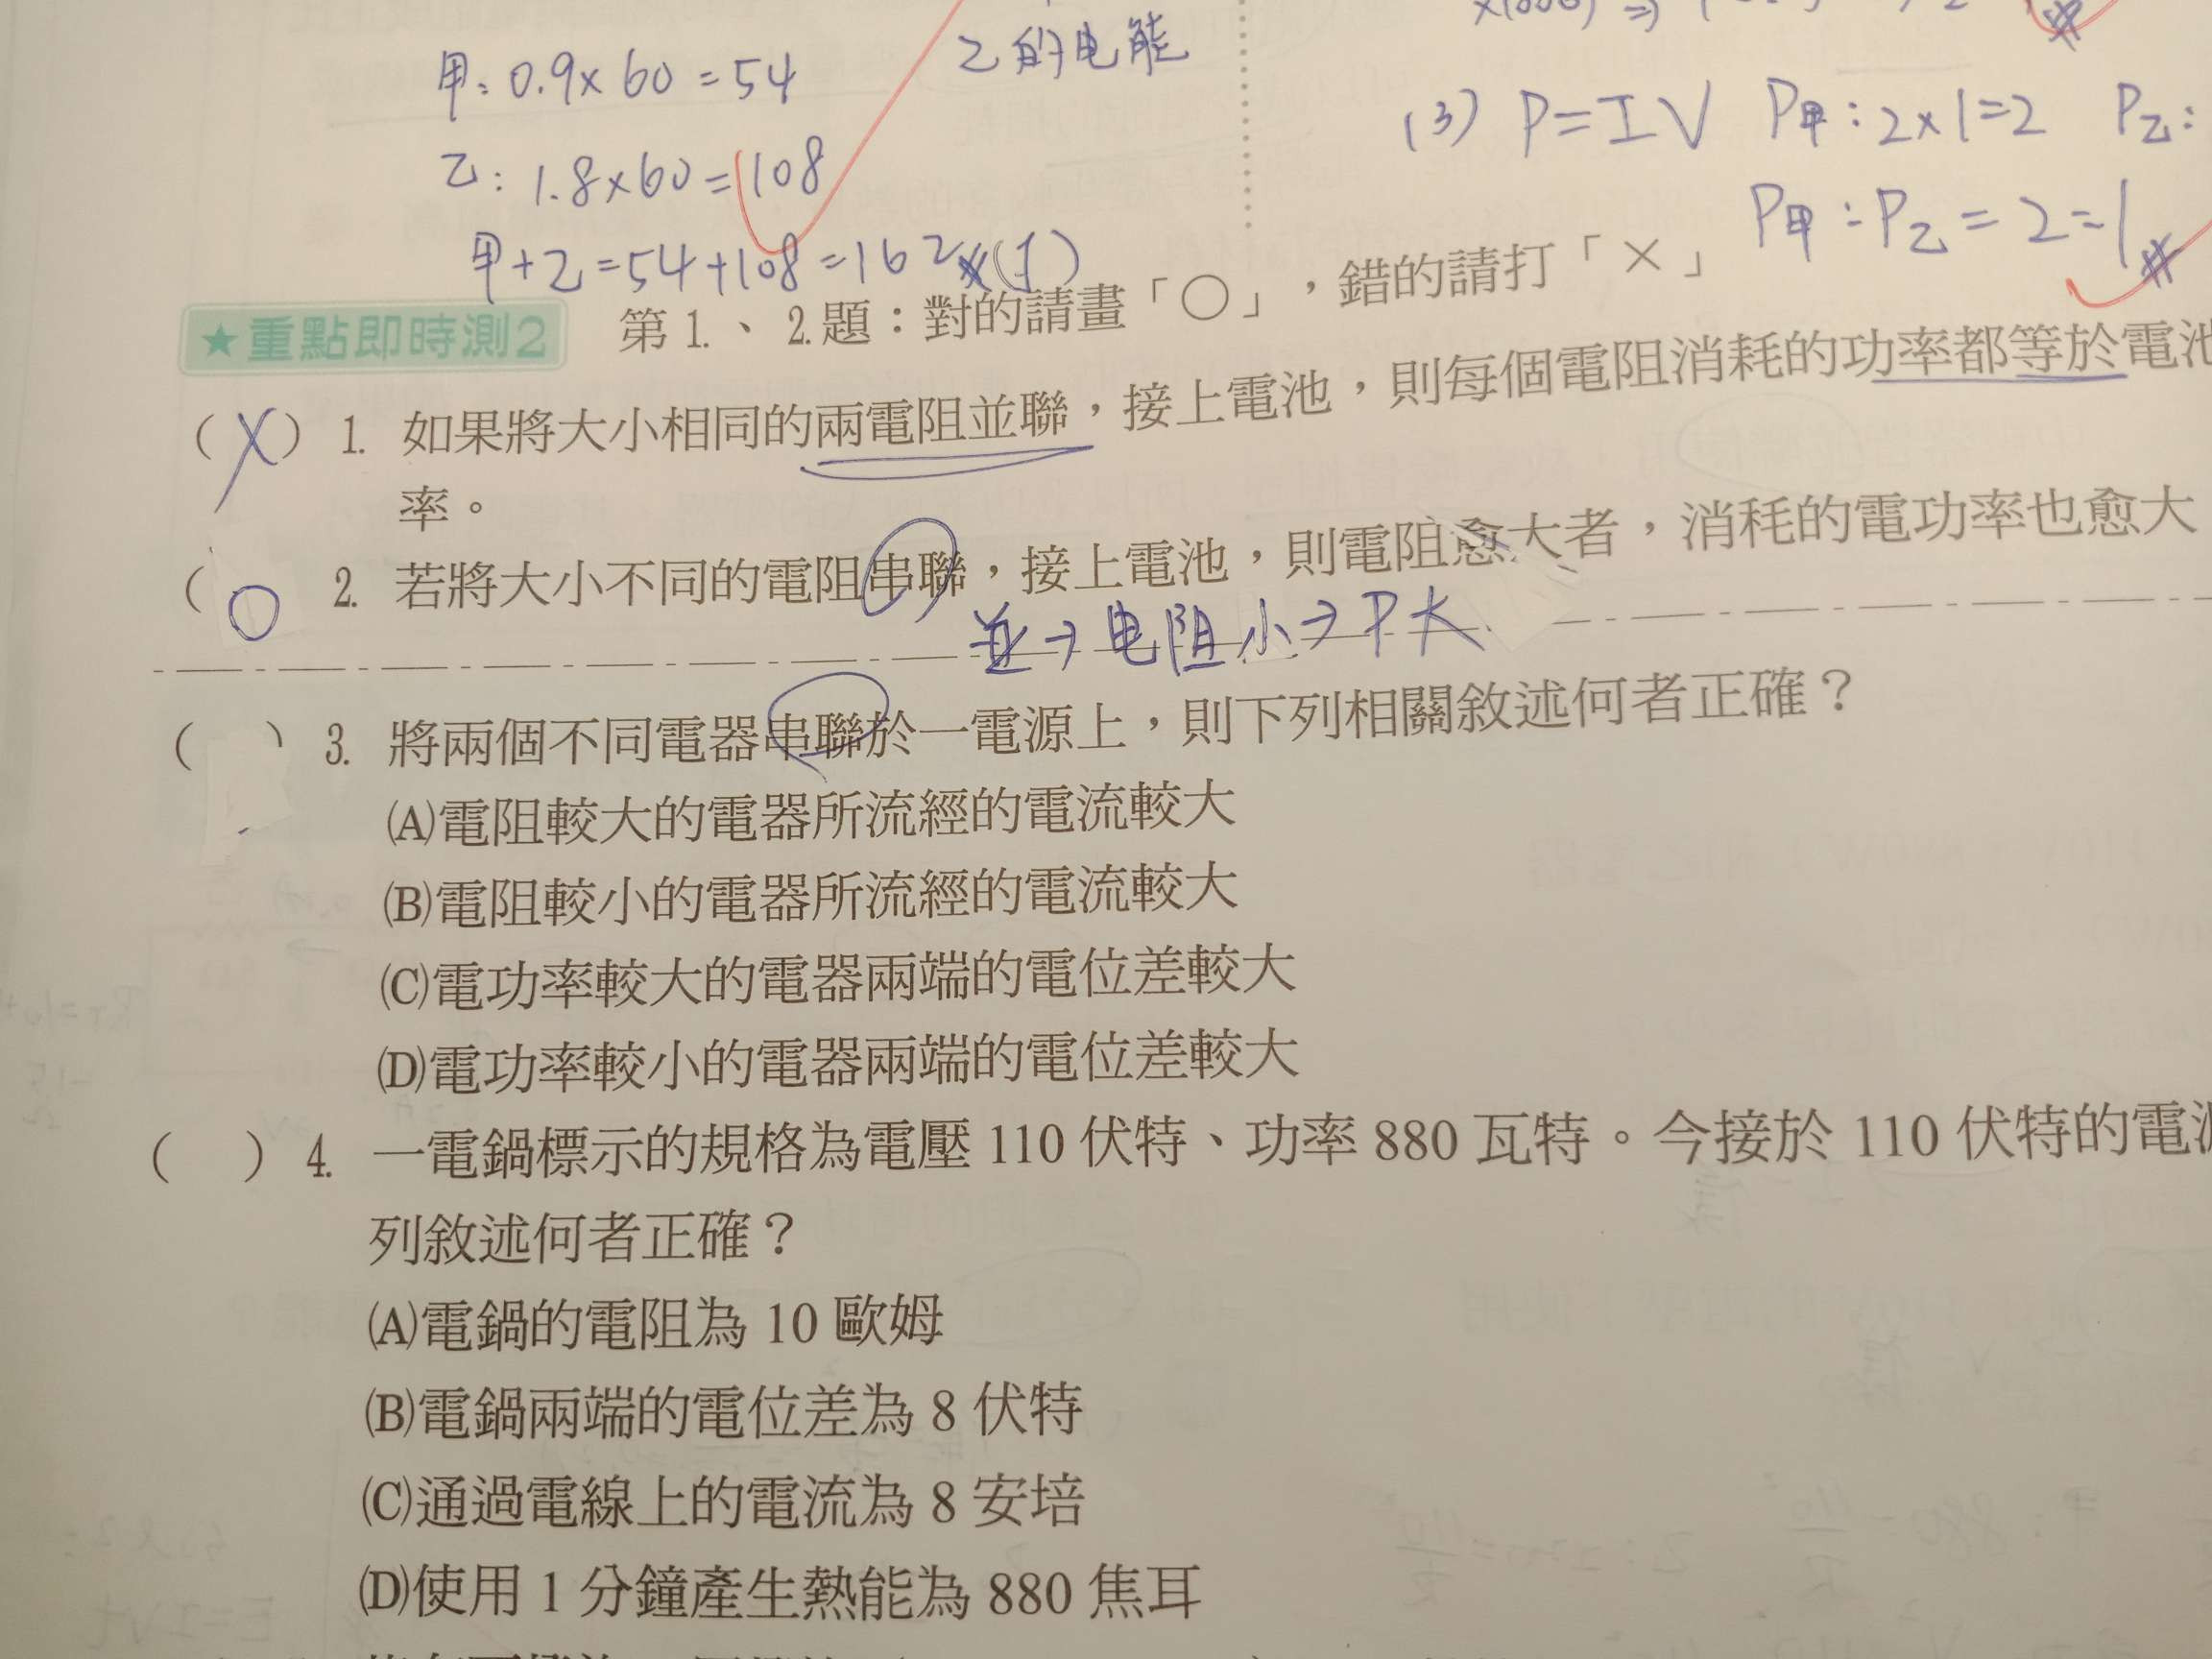 乙的电能
甲:0.9×60=54
乙:1.8×60=108
甲+乙=54+108=162 (J)
(3) P=IV P甲:2×1=2 P乙:
P甲:P乙=2=1
★重點即時測2 第1.、2.題:對的請畫「○」,錯的請打「×」
(X) 1. 如果將大小相同的兩電阻並聯,接上電池,則每個電阻消耗的功率都等於電池
率。
(○ 2. 若將大小不同的電阻串聯,接上電池,則電阻愈大者,消耗的電功率也愈大
並→电阻小→P大
( ) 3. 將兩個不同電器串聯於一電源上,則下列相關敘述何者正確?
(A)電阻較大的電器所流經的電流較大
(B)電阻較小的電器所流經的電流較大
(C)電功率較大的電器兩端的電位差較大
(D)電功率較小的電器兩端的電位差較大
( ) 4. 一電鍋標示的規格為電壓 110 伏特、功率 880 瓦特。今接於 110 伏特的電
列敘述何者正確?
(A)電鍋的電阻為 10 歐姆
(B)電鍋兩端的電位差為 8 伏特
(C)通過電線上的電流為 8 安培
(D)使用 1 分鐘產生熱能為 880 焦耳